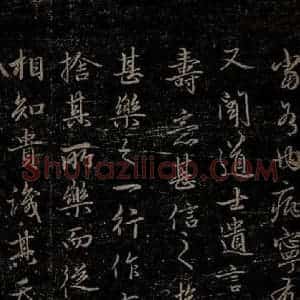 當有内病寧
又聞道士遺言
壽意甚信之
甚樂之一行作
捨其所樂而從
相知貴識其天
Shufaziliao.com